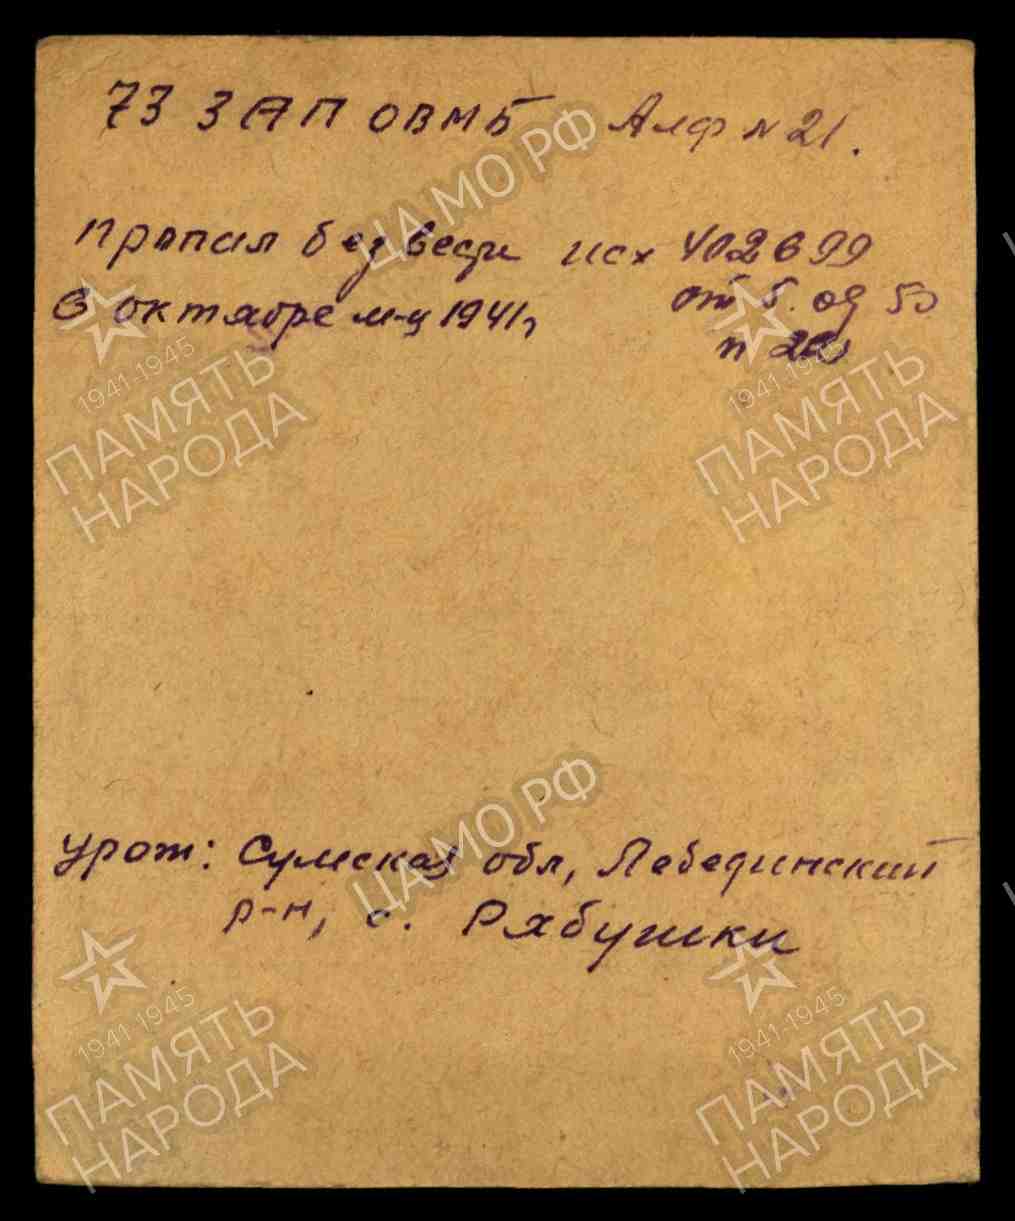 73 ЗАП ОВМБ Алф № 21.
пропал без вести исх 402699
в октябре м-ц 1941г от 5.09 50
п 200
урож: Сумская обл, Лебединский
р-н, с. Рябушки
ЦАМО РФ
1941-1945
ПАМЯТЬ
НАРОДА
1941-1945
ПАМЯТЬ
НАРОДА
ЦАМО РФ
1941-1945
ПАМЯТЬ
НАРОДА
1941-1945
ПАМЯТЬ
НАРОДА